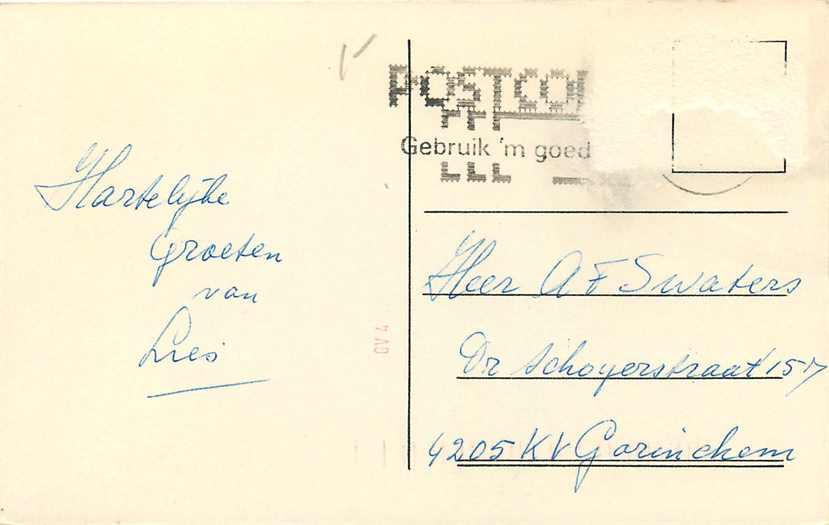 POSTCO
Gebruik 'm goed
Hartelijke
Groeten
van
Lies
Heer A F Swaters
Dr Schoyerstraat 157
4205 KV Gorinchem